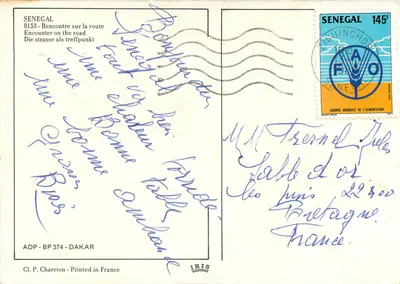 SENEGAL
8153 - Rencontre sur la route
Encounter on the road
Die strasse als treffpunkt
Bonjour du
Sénégal
tout va bien
une chaleur torride
une bonne table
une bonne ambiance
Grosses
Bises
ADP - BP 374 - DAKAR
Cl. P. Chareton - Printed in France
IRIS
SENEGAL 145F
FAO
JOURNEE MONDIALE DE L'ALIMENTATION
M M Fresnel Jules
Sable d'or
les pins 22400
Bretagne
France